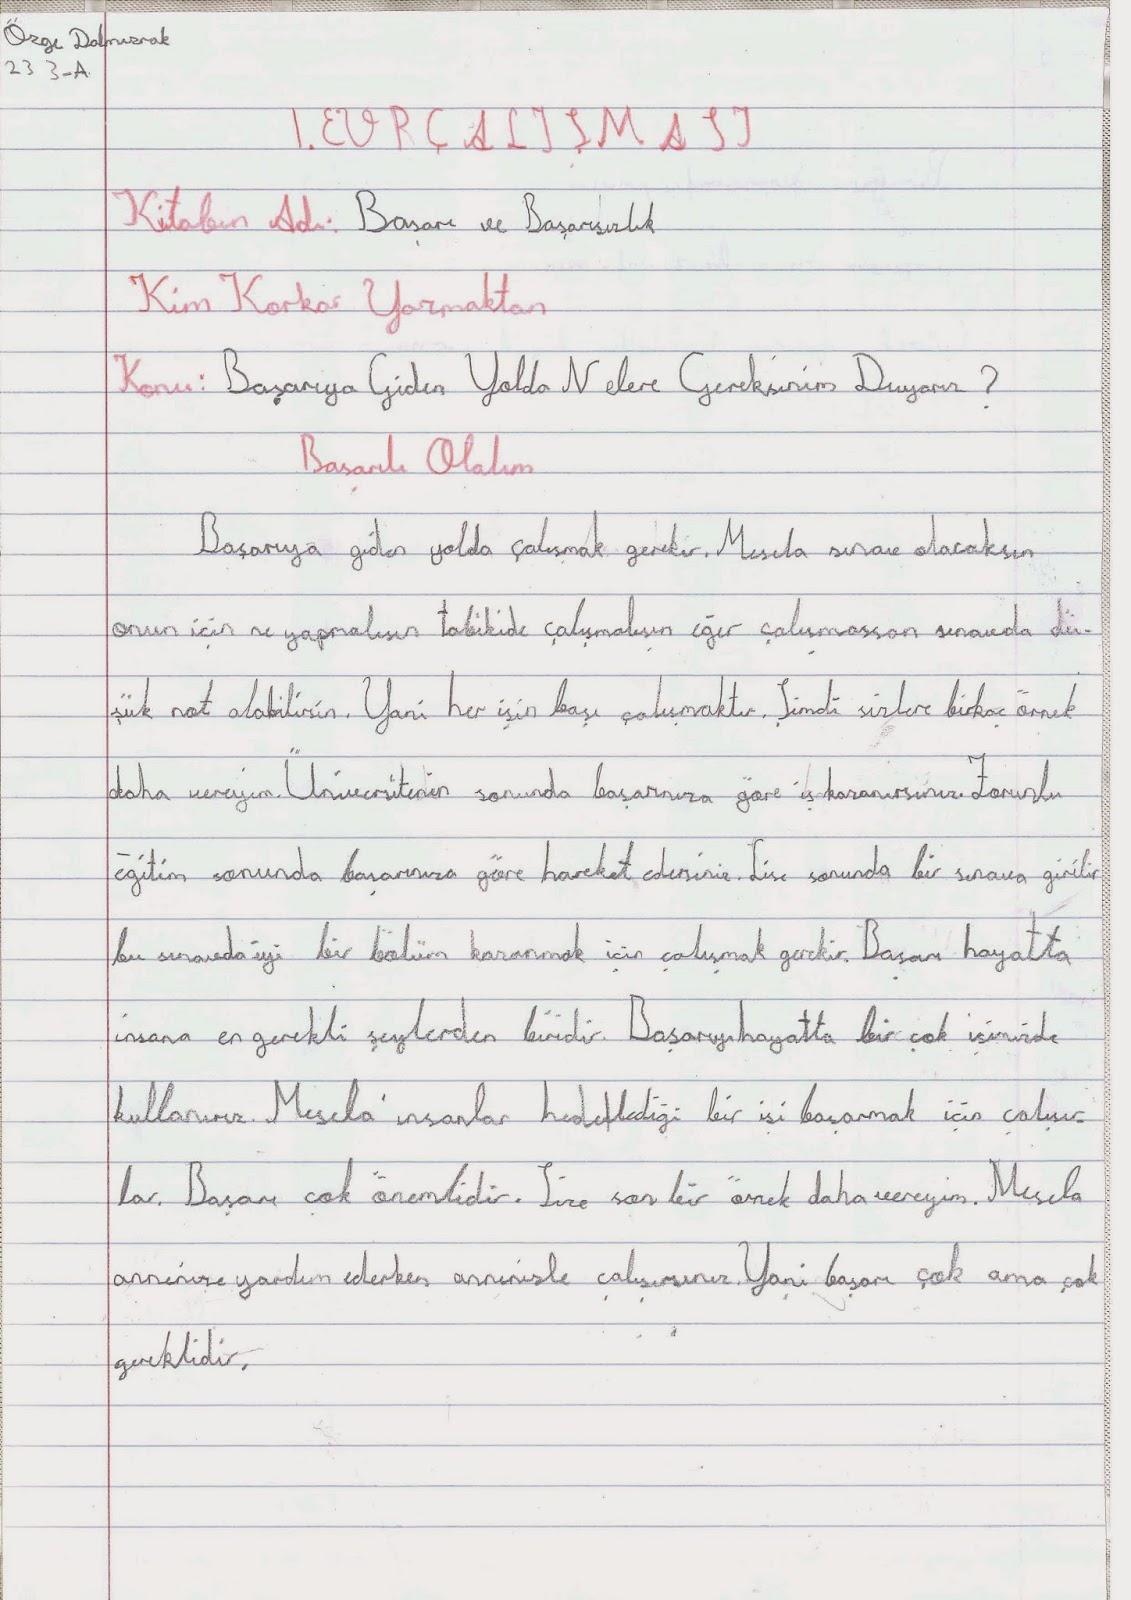 Özge Dalmızrak
23 3-A
1. EVRÇALIŞMASI
Kitabın Adı: Başarı ve Başarısızlık
Kim Korkar Yazmaktan
Konu: Başarıya Giden Yolda Nelere Gereksinim Duyarız?
Başarılı Olalım
Başarıya giden yolda çalışmak gerekir. Mesela sınav olacaksın
onun için ne yapmalısın tabikide çalışmalısın eğer çalışmassan sınavda dü-
şük not alabilirsin. Yani her işin başı çalışmaktır. Şimdi sizlere birkaç örnek
daha vereyim. Üniversitenin sonunda başarınıza göre iş kazanırsınız. Zorunlu
eğitim sonunda başarınıza göre hareket edersiniz. Lise sonunda bir sınava girilir
bu sınavda iyi bir bölüm kazanmak için çalışmak gerekir. Başarı hayatta
insana en gerekli şeylerden biridir. Başarıyı hayatta bir çok işimizde
kullanırız. Mesela insanlar hedeflediği bir işi başarmak için çalışır-
lar. Başarı çok önemlidir. Size son bir örnek daha vereyim. Mesela
annenize yardım ederken annenizle çalışırsınız. Yani başarı çok ama çok
gereklidir.